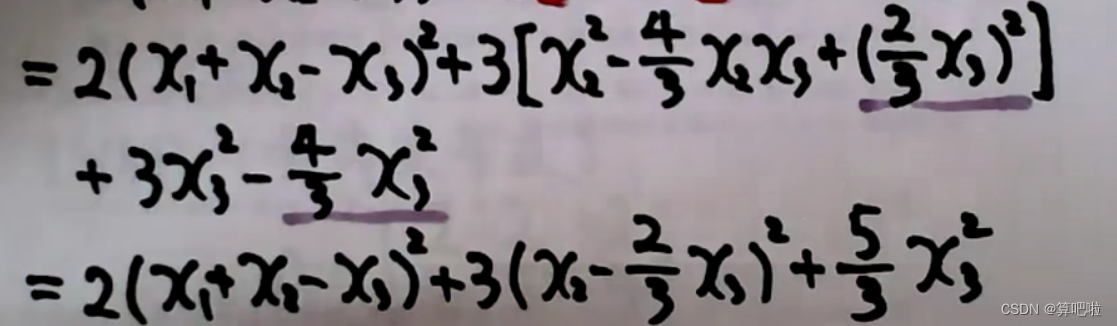 = 2(x₁+x₂-x₃)²+3[x₂²-4/3x₂x₃+(2/3x₃)²]
+3x₃²-4/3x₃²
= 2(x₁+x₂-x₃)²+3(x₂-2/3x₃)²+5/3x₃²
CSDN @算吧啦